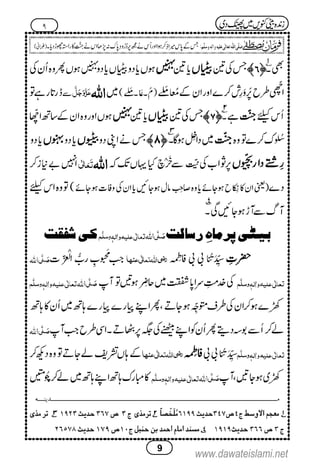 زندہ بیٹی کنویں میں پھینک دی
۹
فرمانِ مصطفٰے صَلَّی اللہُ تعالٰی علیہ واٰلہٖ وسلَّم : جس کے پاس میرا ذِکر ہوا اور اُس نے مجھ پر دُرُودِ پاک نہ پڑھا اس نے جنّت کا راستہ چھوڑ دیا۔ (طبرانی)
بھی ﴿6﴾ جس کی تین بیٹیاں یا تین بہنیں ہوں یا دو بیٹیاں یا دو بہنیں ہوں پھر وہ ان کی
اچھی طرح پرورش کرے اور ان کے مُعامَلے (مُ۔عا۔مَ۔لے) میں اللہ عَزَّوَجَلَّ سے ڈرتا رہے تو
اُس کیلئے جنّت ہے ﴿7﴾ جس کی تین بیٹیاں یا تین بہنیں ہوں اور وہ ان کے ساتھ اچھا
سُلوک کرے تو وہ جنّت میں داخِل ہوگا ﴿8﴾ جس نے اپنی دو بیٹیوں یا دو بہنوں یا دو
رِشتے دار بچّیوں پر ثواب کی نیّت سے خَرچ کیا یہاں تک کہ اللہ تعالٰی انہیں بے نیاز کر
دے (یعنی ان کا نکاح ہوجائے یا وہ صاحبِ مال ہوجائیں یا ان کی وفات ہوجائے) تو وہ اس کیلئے
آگ سے آڑ ہوجائیں گی۔
بیٹی پر ماہِ رسالت صَلَّی اللہُ تعالٰی علیہ واٰلہٖ وسلَّم کی شفقت
حضرتِ سیِّدَتُنا بی بی فاطمہ رضی اللہ تعالٰی عنہا جب محبوبِ ربُّ العزّت صَلَّی اللہُ
تعالٰی علیہ واٰلہٖ وسلَّم کی خدمتِ سراپا شفقت میں حاضِر ہوتیں تو آپ صَلَّی اللہُ تعالٰی علیہ واٰلہٖ وسلَّم
کھڑے ہو کر ان کی طرف مُتوجّہ ہو جاتے، پھر اپنے پیارے پیارے ہاتھ میں اُن کا ہاتھ
لے کر اُسے بوسہ دیتے پھر اُن کو اپنے بیٹھنے کی جگہ پر بٹھاتے۔ اسی طرح جب آپ صَلَّی اللہُ
تعالٰی علیہ واٰلہٖ وسلَّم سیِّدَتُنا بی بی فاطمہ رضی اللہ تعالٰی عنہا کے ہاں تشریف لے جاتے تو وہ دیکھ کر
کھڑی ہو جاتیں، آپ صَلَّی اللہُ تعالٰی علیہ واٰلہٖ وسلَّم کا مبارک ہاتھ اپنے ہاتھ میں لے کر چُومتیں
معجم الاوسط ج ٤ ص ٣٤٧ حدیث ٦١٩٩ مُلَخَّصاً ترمذی ج ٣ ص ٣٦٧ حدیث ١٩٢٣ ترمذی
ج ٣ ص ٣٦٦ حدیث ١٩١٩ مسند امام احمد بن حنبل ج ١٠ ص ١٧٩ حدیث ٢٦٥٧٨
9
www.dawateislami.net